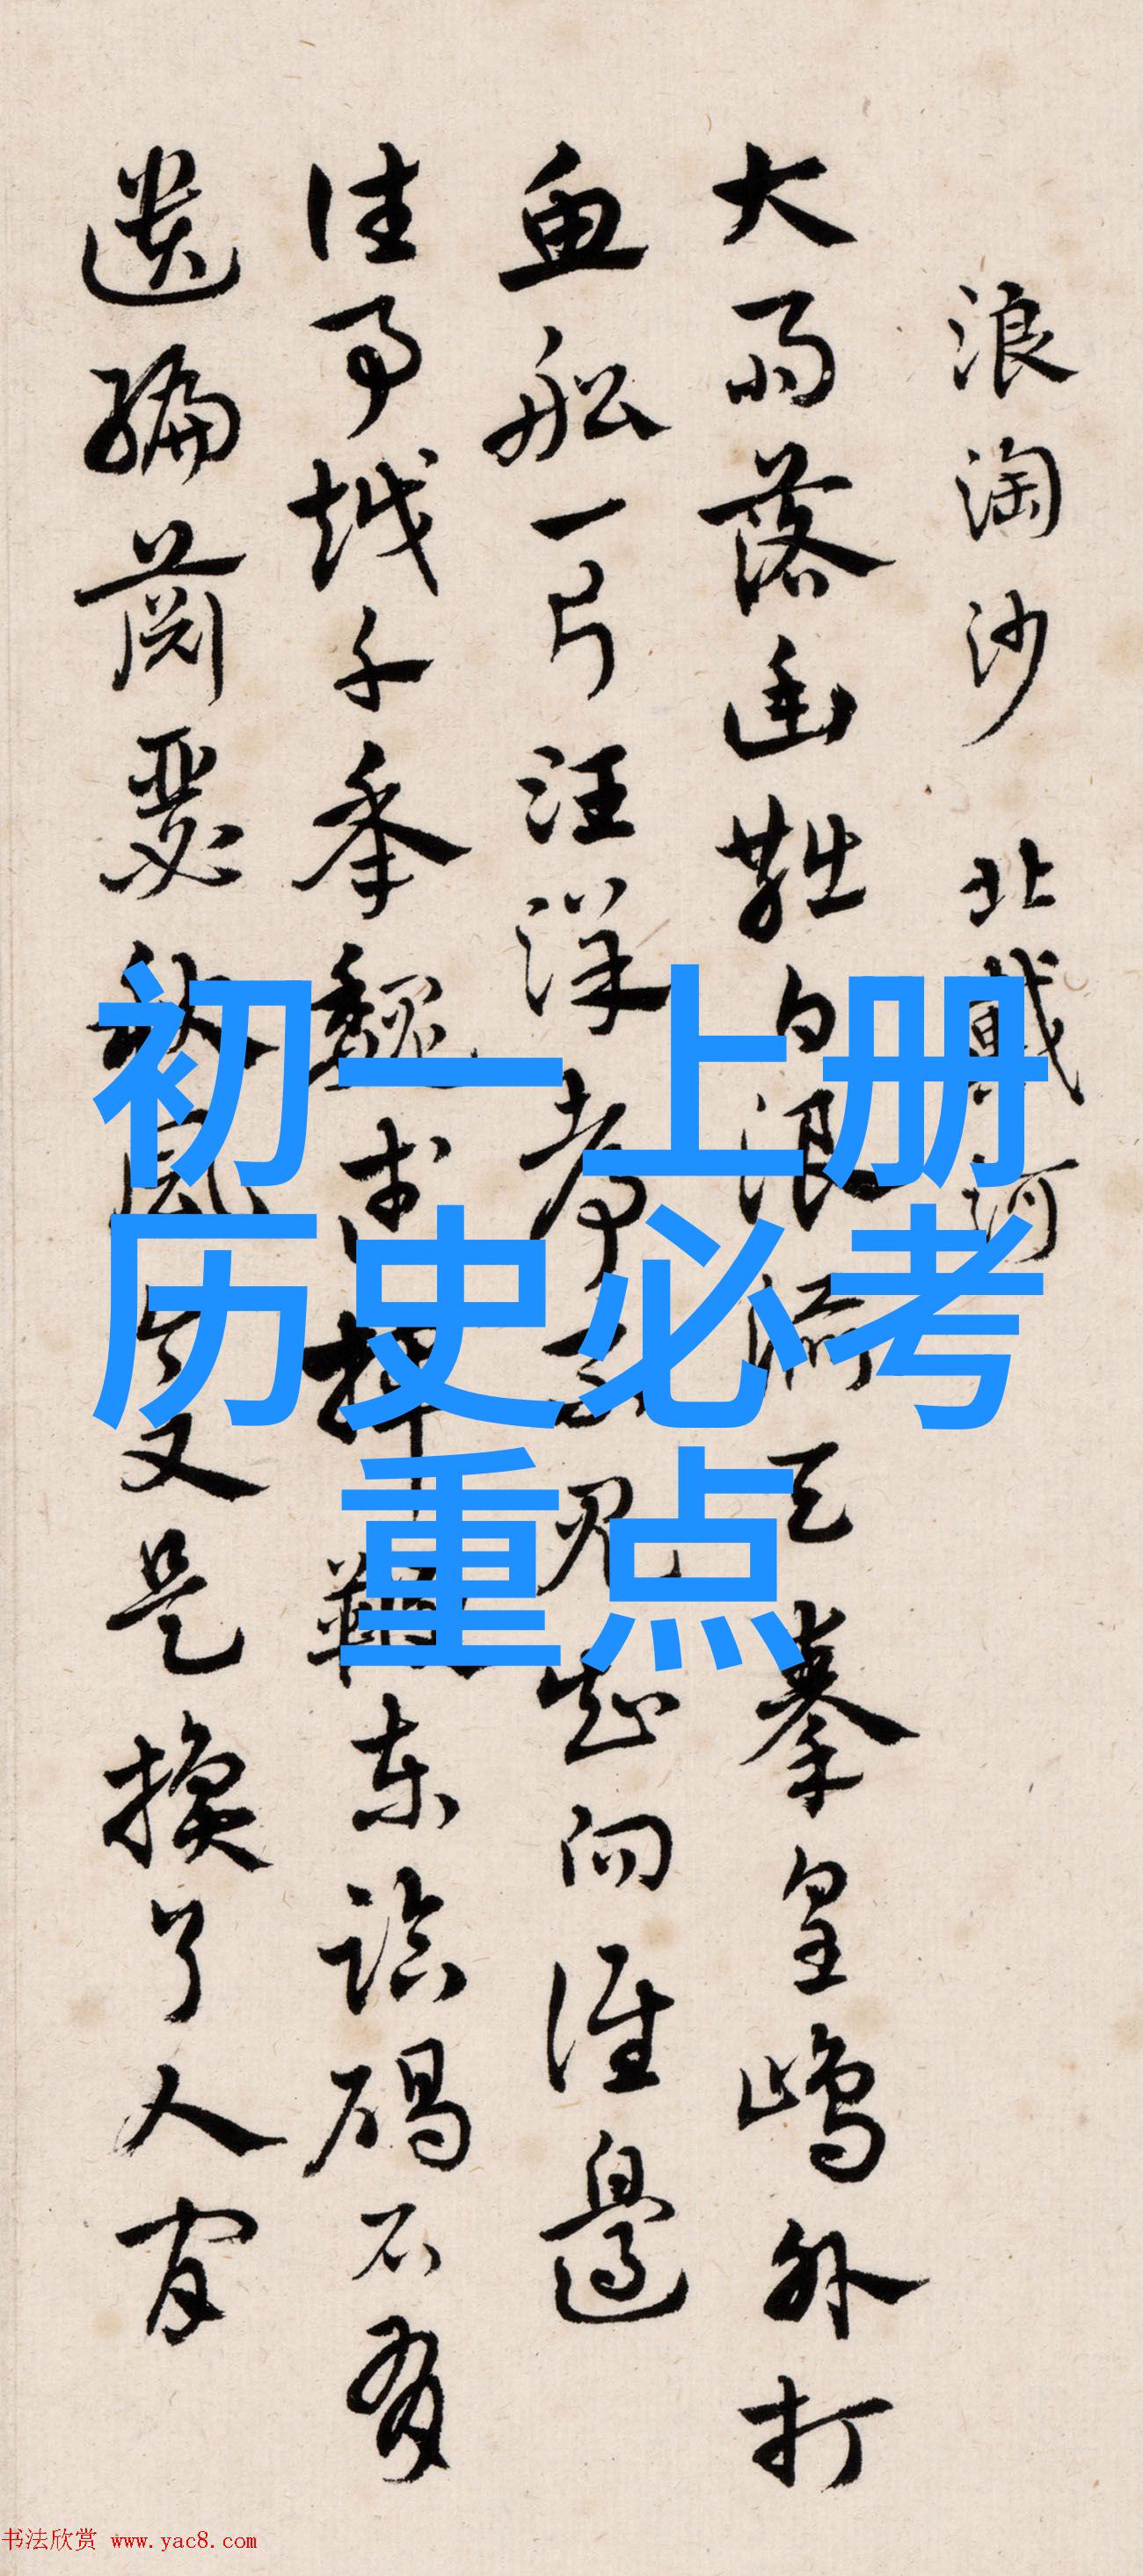 浪淘沙 北戴河
大雨落幽燕白浪滔天秦皇島外打
魚船一片汪洋都不見知向誰邊
往事越千年魏武揮鞭東臨碣石有
遺編蕭瑟秋風今又是換了人間
初一上册
历史必考
重点
书法欣赏 www.yac8.com